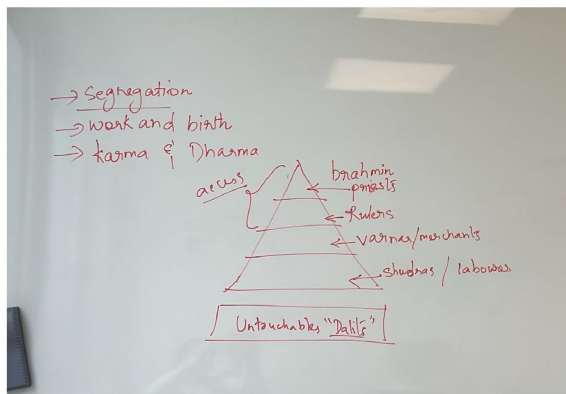 → Segregation
→ work and birth
→ karma & Dharma
access
brahmin
priests
Rulers
varnas/merchants
shudras / labowas
Untouchables "Dalits"